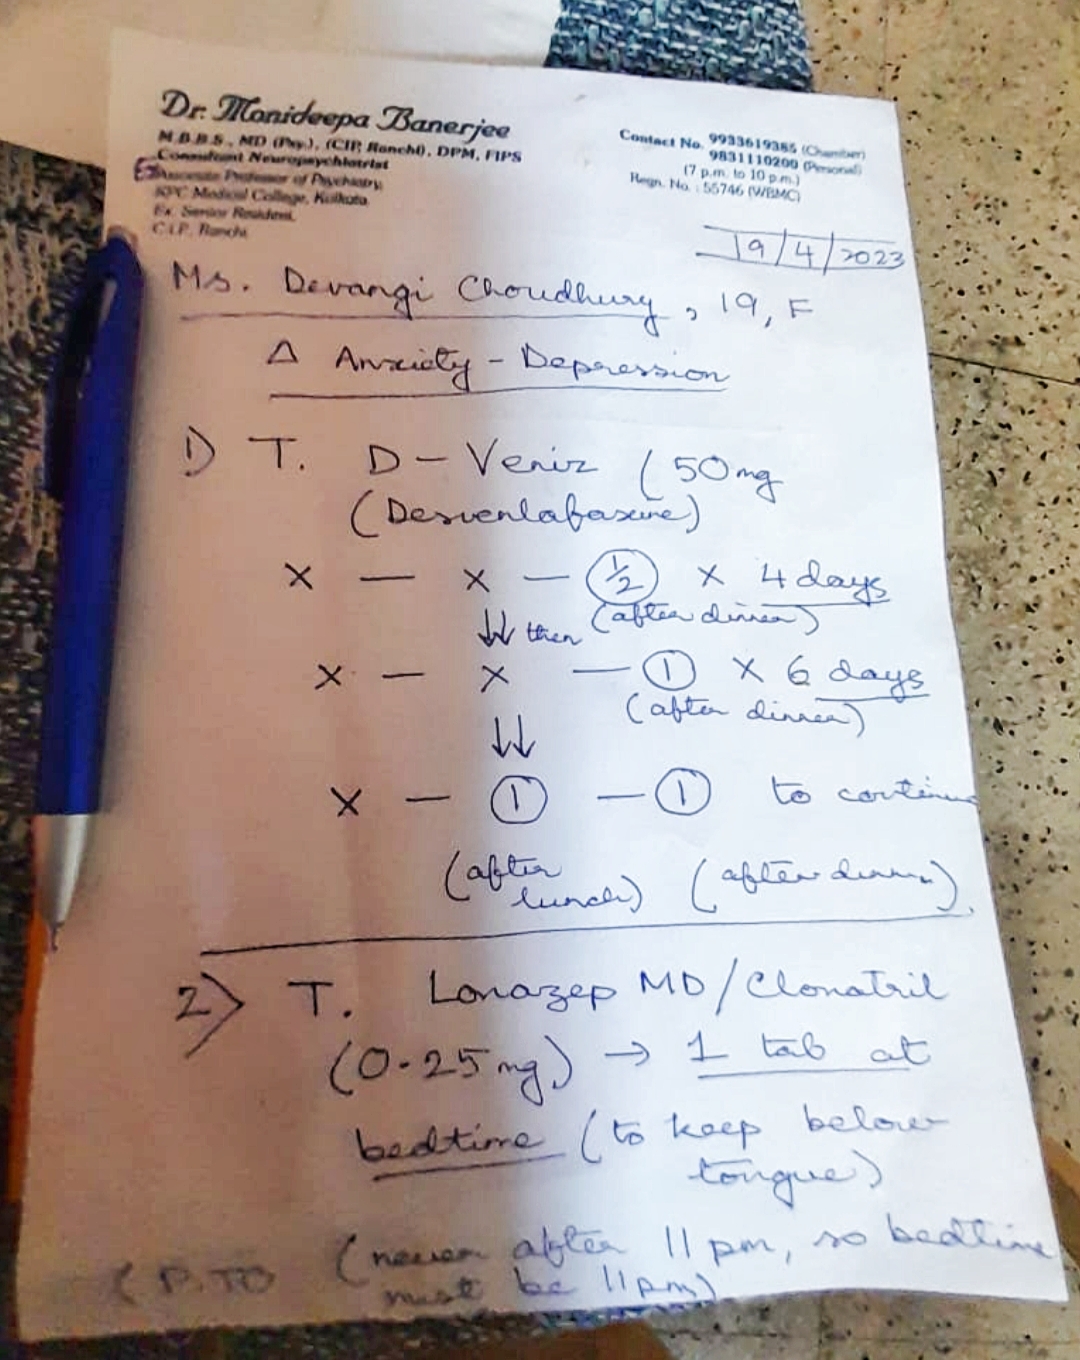 Dr. Monideepa Banerjee
M.B.B.S., MD (Psy.), (CIP, Ranchi), DPM, FIPS
Consultant Neuropsychiatrist
Ex Associate Professor of Psychiatry
KPC Medical College, Kolkata
Ex. Senior Resident,
C.I.P., Ranchi
Contact No. 9933619385 (Chamber)
9831110200 (Personal)
(7 p.m. to 10 p.m.)
Regn. No. : 55746 (WBMC)
19/4/2023
Ms. Devangi Choudhury, 19, F
Δ Anxiety - Depression
1) T. D-Veniz (50mg
(Desvenlafaxine)
x — x — 1/2 x 4 days
(after dinner)
↓↓ then
x — x — 1 x 6 days
(after dinner)
↓↓
x — 1 — 1 to continue
(after lunch) (after dinner)
2) T. Lonazep MD/Clonatril
(0.25 mg) → 1 tab at
bedtime (to keep below
tongue)
(never after 11 pm, so bedtime
(P.TO must be 11pm)